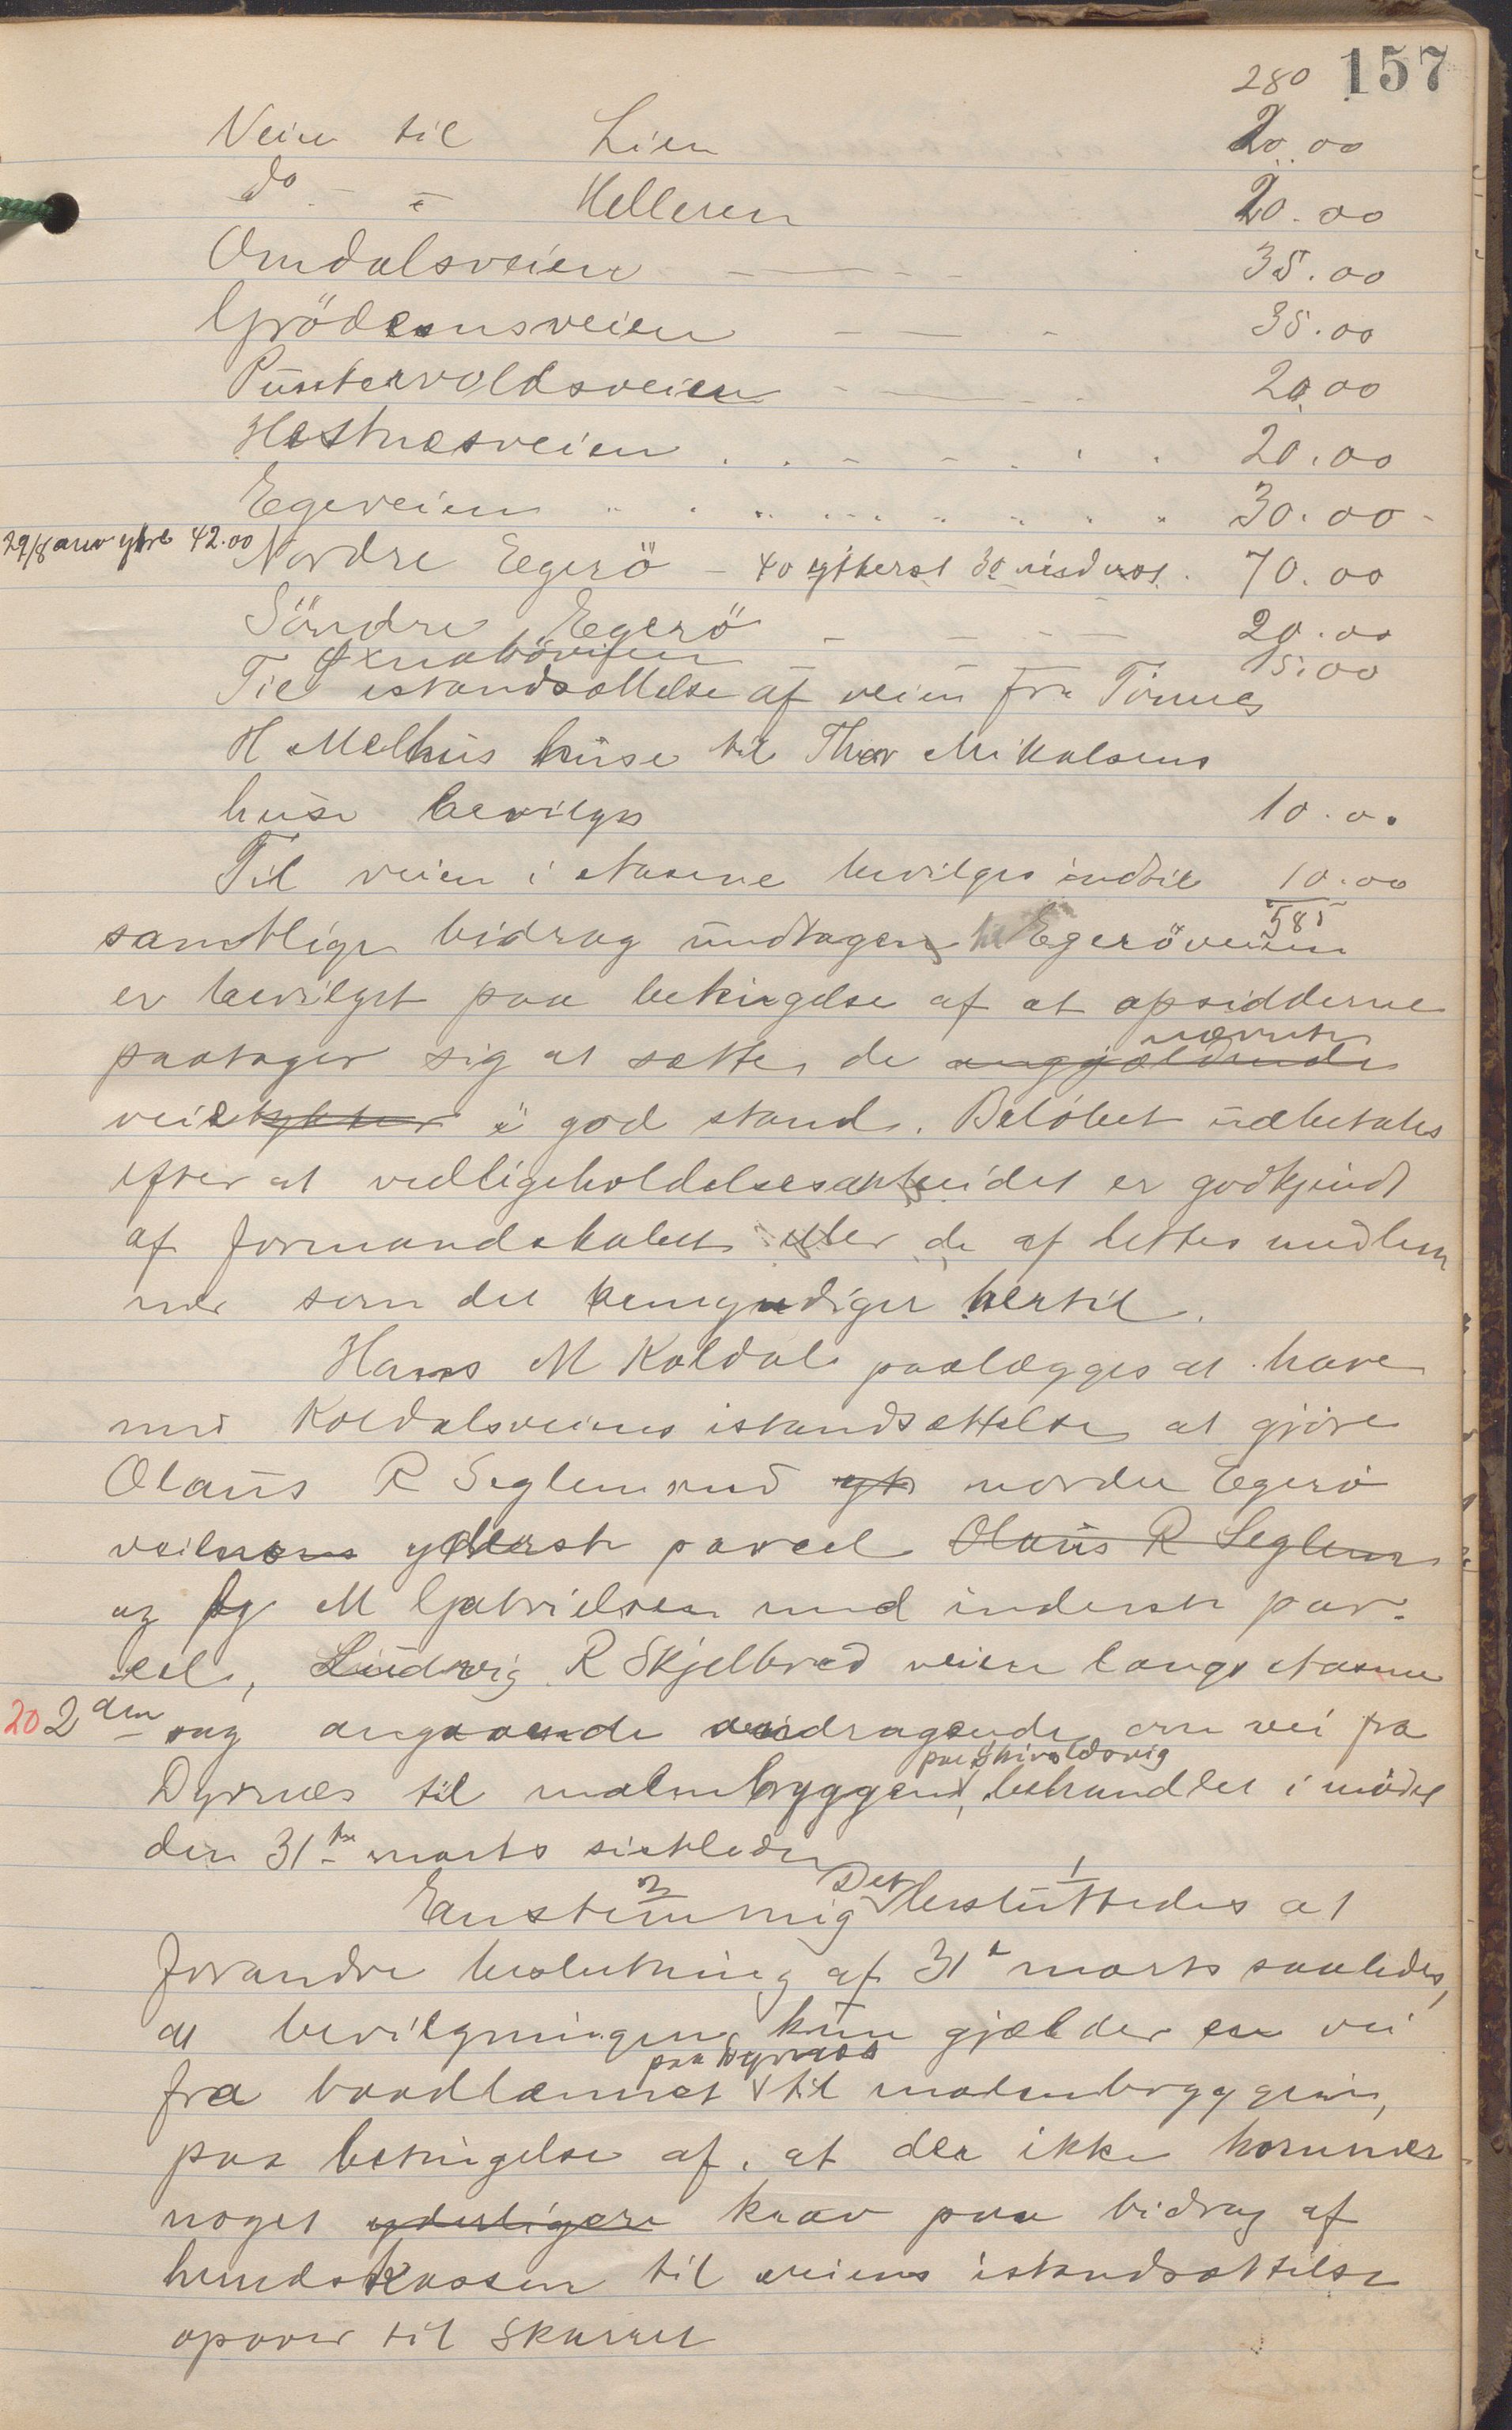 280 157
Veien til Lien 20.00
do - " Helleren 20.00
Omdalsveien - - - 35.00
Grödemsveien - - - 35.00
Puntervoldsveien - - - 20.00
Hestnesveien . . - - . . . 20.00
Egeveien " . " . . . " " " " 30.00 -
29/8 anv ytre 42.00 Nordre Egerö - 40 ytterst 30 inderst . 70.00
Söndre Egerö - - - - 20.00
Oxnabövejen - - - 15.00
Til istandsættelse af veien fra Tönnes
H Melhus huse til Thor Mikalsens
huse bevilges 10.00
Til veien i Nasene bevilges indtil 10.00
585
samtlige bidrag undtagen til Egeröveien
er bevilget paa betingelse af at opsidderne
paatager sig at sætte de anggjældende nævnte
veistykker i god stand. Beløbet udbetales
efter at vedligeholdelsesarbeidet er godkjendt
af formandskabet eller de af dettes medlem
mer som det bemyndiger hertil.
Hans M Koldal paalægges at have
med Koldalsveiens istandsættelse at gjöre
Olaus R Seglem med yt nordre Egerö
veiens yderste parcel Olaus R Seglem
og M Gabrielsen med inderste par-
cel, Ludvig R Skjelbred veien langs Nasene
20 2den sag angaaende andragende om vei fra
Dyrnes til malmbryggen paa Skivoldsvig, behandlet i mödet
den 31te marts sistleden
Enstemmig 2 Det besluttedes 1 at
forandre beslutning af 31te marts saaledes,
at bevilgningen kun gjælder en vei
fra baadlænnet paa Dyrnes til malmbryggen,
paa betingelse af, at der ikke kommer
noget yderligere krav paa bidrag af
herredskassen til veiens istandsættelse
opover til Skarret